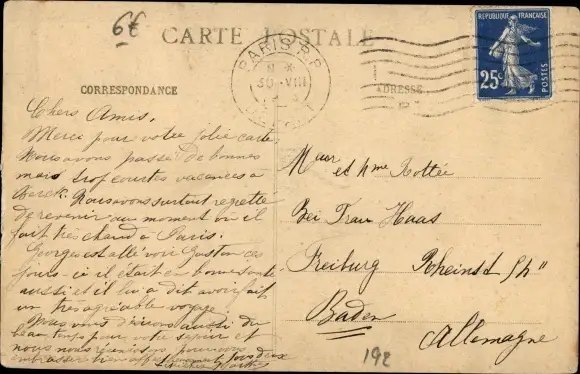 6€
CARTE POSTALE
PARIS R.P.
30 - VIII
RÉPUBLIQUE FRANÇAISE
25c
POSTES
CORRESPONDANCE
ADRESSE
Chers Amis,
Merci pour votre jolie carte
Nous avons passé de bonnes
mais trop courtes vacances à
Berck. Nous avons surtout regretté
de revenir au moment où il
fait très chaud à Paris.
Georges est allé voir Gaston ces
jours-ci il était en bonne santé
aussi et il lui a dit avoir fait
un très agréable voyage.
Nous vous désirons aussi du
beau temps pour votre séjour et
nous nous réunissons pour vous
embrasser bien affectueusement tous deux
Mr et Mme Rottée
Bei Frau Haas
Freiburg Rheinstr
Baden
Allemagne
192